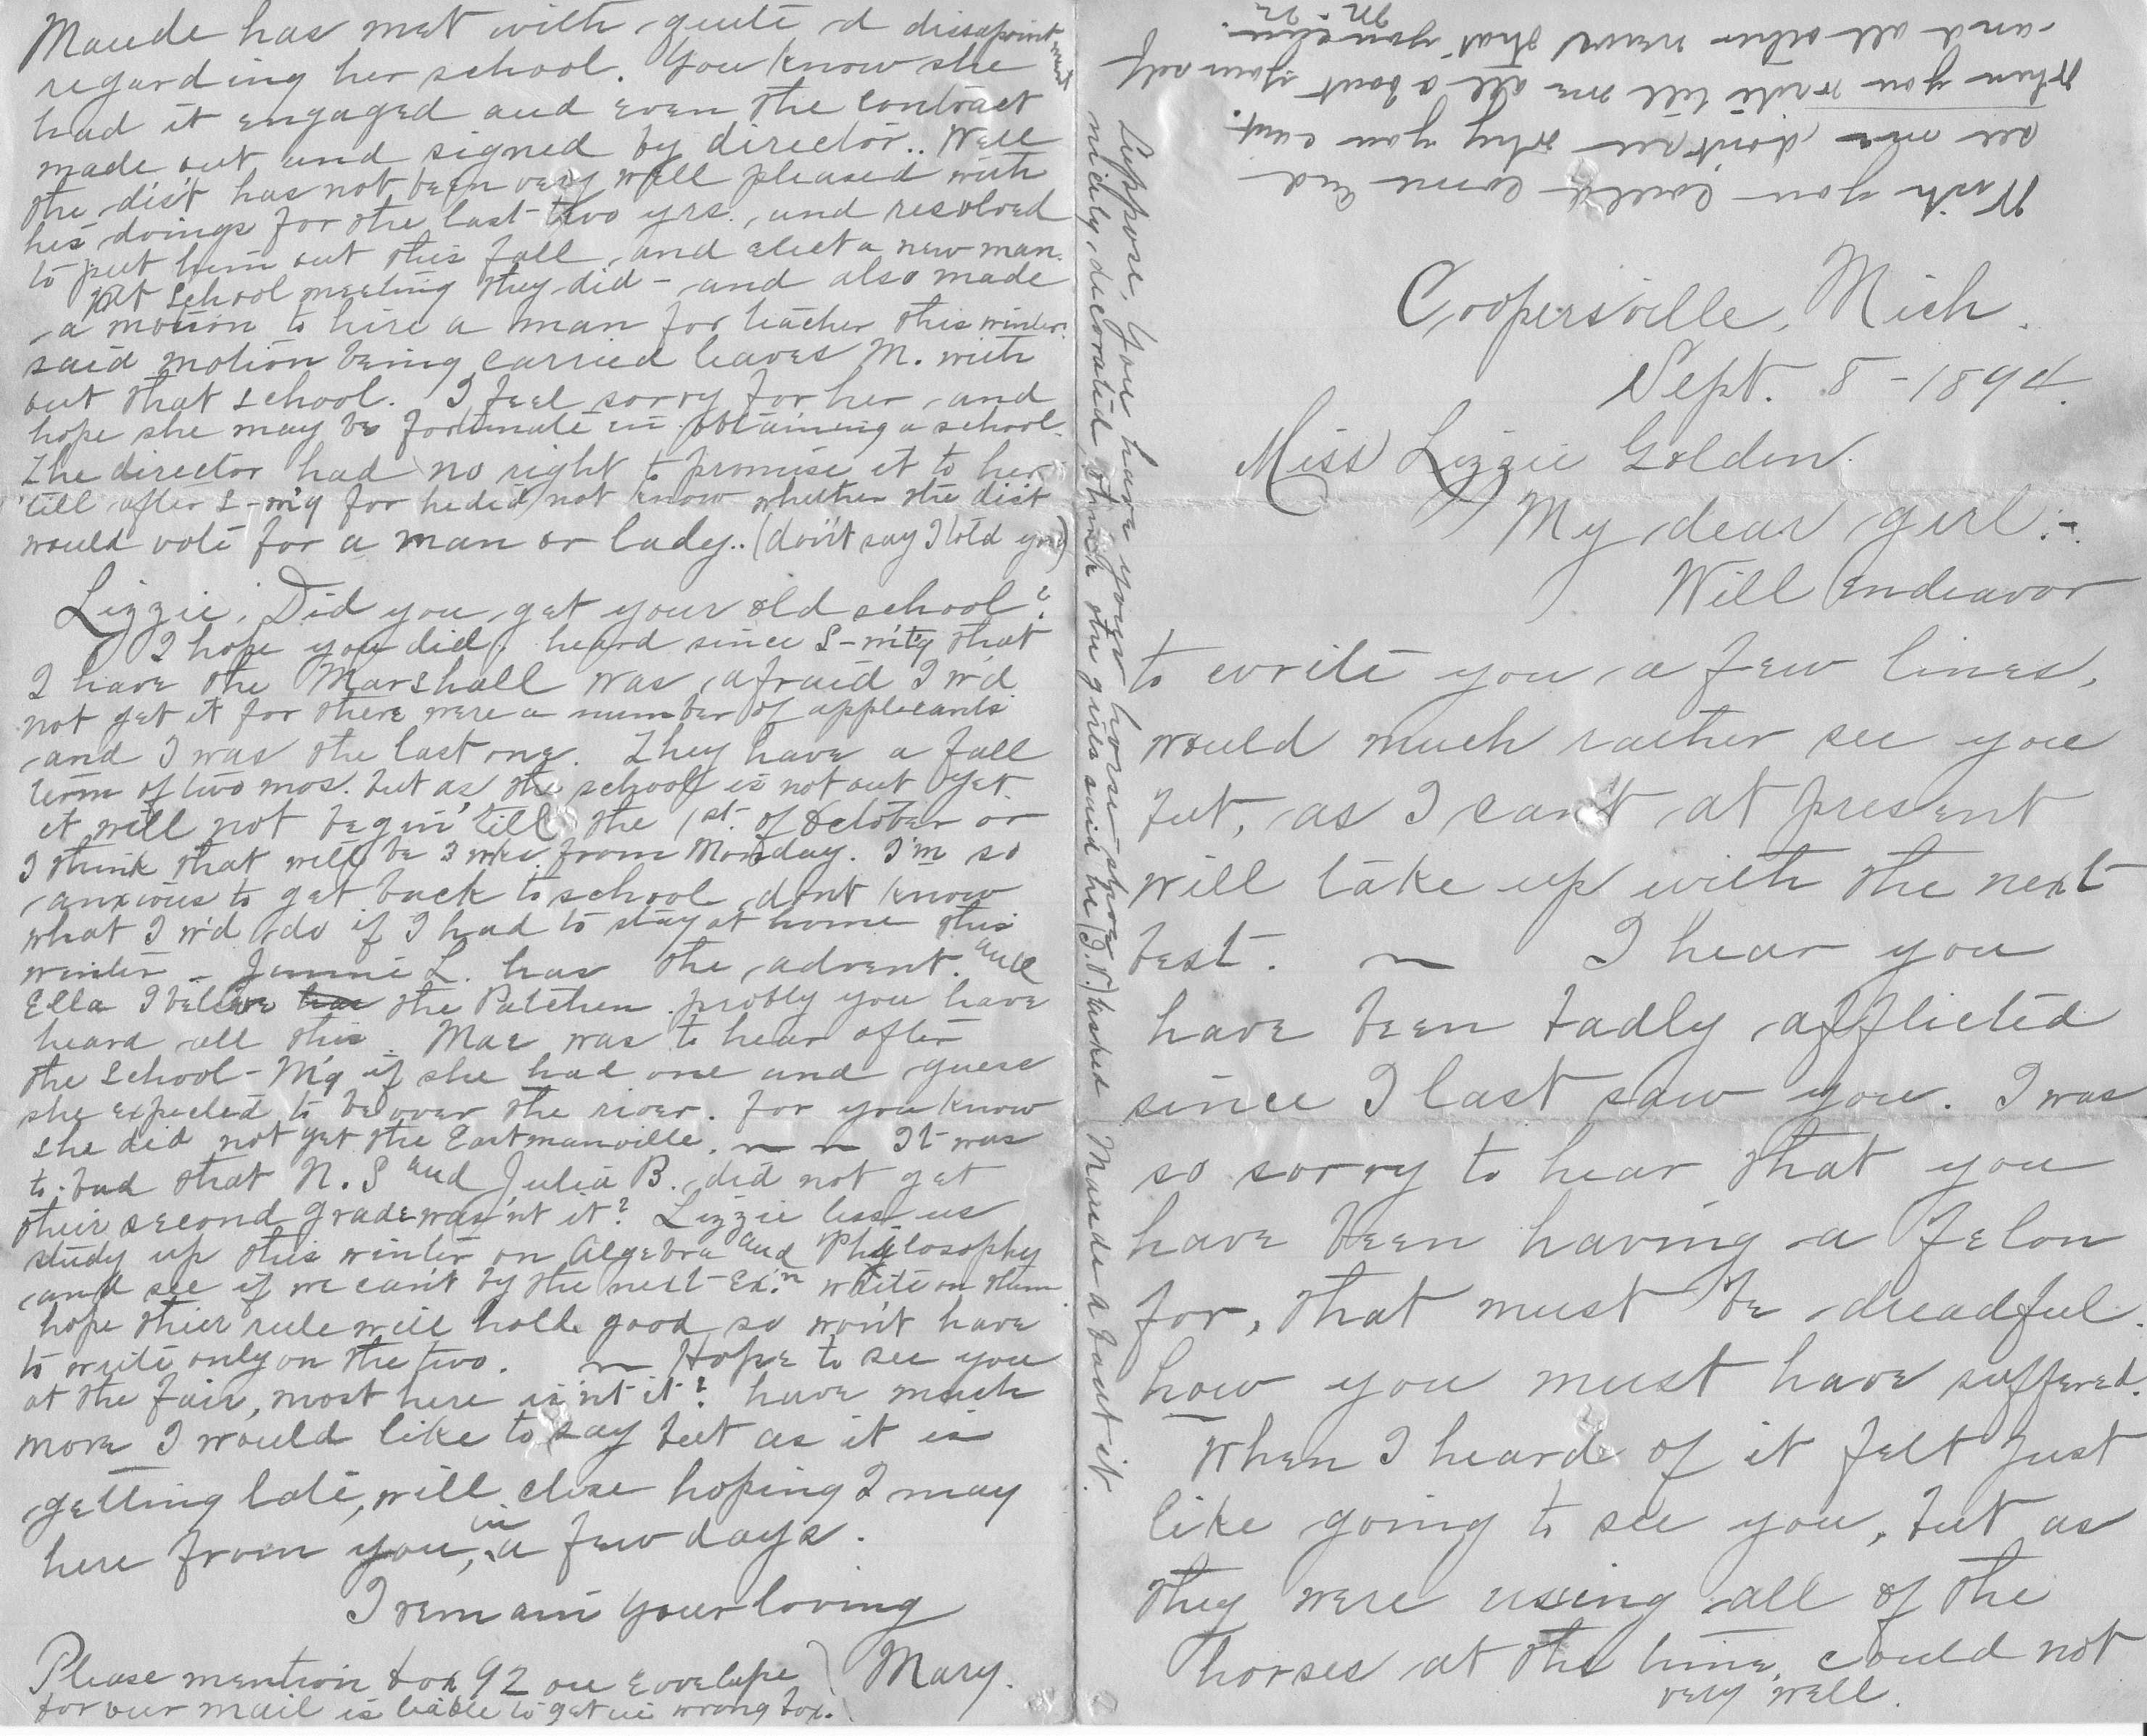 Coopersville, Mich.
Sept. 8 - 1894.
Miss Lizzie Golden.
My dear girl:-
Will endeavor
to write you a few lines,
would much rather see you
but, as I can't at present
will take up with the next
best. ~ I hear you
have been badly afflicted
since I last saw you. I was
so sorry to hear that you
have been having a felon
for, that must be dreadful.
how you must have suffered.
When I heard of it felt just
like going to see you, but as
they were using all of the
horses at the time, could not
very well.
Maude has met with quite a dissapointment
regarding her school. You know she
had it engaged and even the contract
made out and signed by director.. Well
the dist has not been very well pleased with
his doings for the last two yrs. and resolved
to put him out this fall, and elect a new man.
At School meeting they did - and also made
a motion to hire a man for teacher this winter.
said motion being carried leaves M. with
out that school. I feel sorry for her and
hope she may be fortunate in obtaining a school.
The director had no right to promise it to her
'till after S-m'g for he did not know whether the dist
would vote for a man or lady.. (don't say I told you)
Lizzie, Did you get your old school?
I hope you did. heard since S-mt'g that
I have the Marshall was afraid I w'd
not get it for there were a number of applicants
and I was the last one. They have a fall
term of two mos. but as the school is not out yet
it will not begin 'till the 1st. of October or
I think that will be 3 wks. from Monday. I'm so
anxious to get back to school dont know
what I w'd do if I had to stay at home this
winter - Jennie L. has the advent. and
Ella I believe has the Patchen probly you have
heard all this. Mae was to hear after
the School-M'g if she had one and guess
she expected to be over the river. for you know
she did not get the Eastmanville. ~ ~ It was
to bad that N. S and Julia B. did not get
their second grade was'nt it? Lizzie less us
study up this winter on Algebra and Philosophy
and see if we can't by the next Ex'n write on them
hope thier rule will hold good so won't have
to write only on the two. ~ Hope to see you
at the fair, most here is'nt it? have much
more I would like to say but as it is
getting late, will close hoping I may
here from you, in a few days.
I remain your loving
Mary.
Please mention box 92 on envelope
for our mail is liable to get in wrong box.
Suppose, you have your horse-shoe
nicely decorated, think the girls said he (T.P.) asked Maude about it.
Wish you could come and
see me don't see why you cant.
When you write tell me all about yourself
and all other news that you can.
M. N.